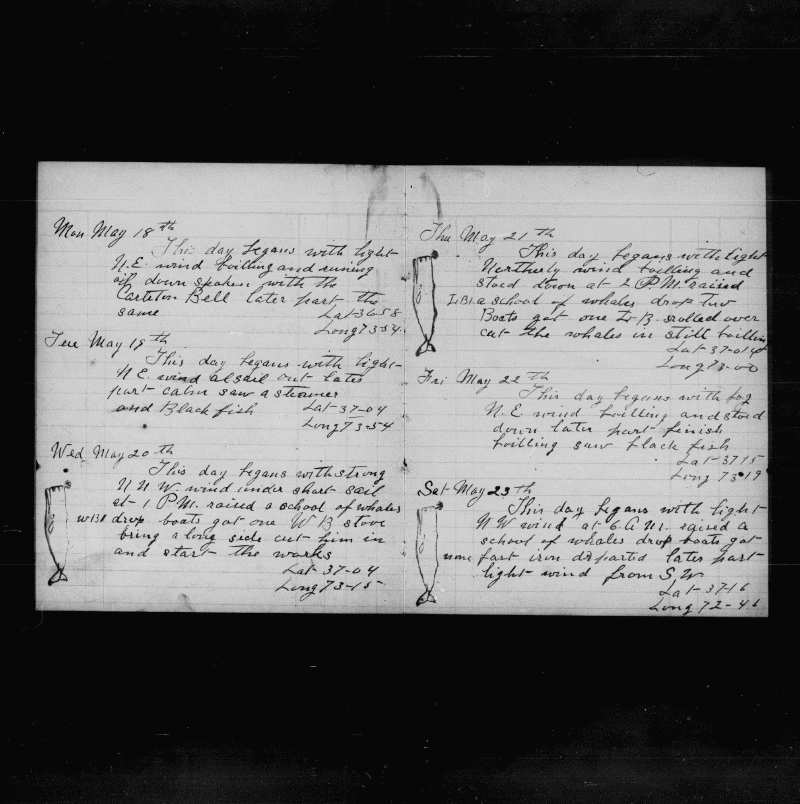 Mon May 18th
This day begans with light
N.E. wind boilling and runing
off down spoken with the
Carleton Bell later part the
same
Lat-36-58
Long 73-54
Tue May 19th
This day begans with light
N E wind al sail out later
part calm saw a steamer
and Black fish
Lat-37-04
Long 73-54
Wed May 20th
This day begans with strong
N N W wind under short sail
at 1 P M. raised a school of whales
WB1 drop boats got one W B stove
bring along side cut him in
and start the works
Lat-37-04
Long 73-15
Thu May 21th
This day begans with light
Northerly wind boilling and
stood down at 2 P M. raised
a school of whales drop two
Boats got one B rolled over
cut the whales in still boilling
Lat 37-01
Long 73-00
Fri May 22th
This day begans with fog
N.E wind boilling and stood
down later part finish
boilling saw black fish
Lat-37 15
Long 73-19
Sat May 23th
This day begans with light
N W wind at 6 A M. raised a
school of whales drop boats got
none fast iron departed later part
light wind from S, W
Lat-37-16
Long 72-46